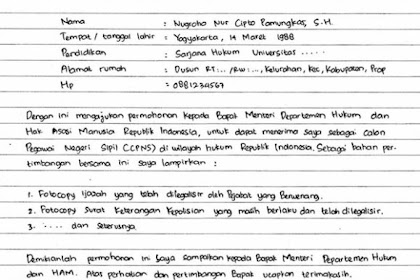 Nama : Nugroho Nur Cipto Pamungkas, S.H.
Tempat / tanggal lahir : Yogyakarta, 14 Maret 1988
Pendidikan : Sarjana Hukum Universitas .....
Alamat rumah : Dusun RT:.., /RW:..., Kelurahan, Kec, Kabupaten, Prop
Hp : 0881234567
Dengan ini mengajukan permohonan kepada Bapak Menteri Departemen Hukum dan
Hak Asasi Manusia Republik Indonesia, untuk dapat menerima saya sebagai calon
Pegawai Negeri Sipil (CPNS) di wilayah hukum Republik Indonesia. Sebagai bahan per-
timbangan bersama ini saya lampirkan :
1. Fotocopy Ijazah yang telah dilegalisir oleh Pejabat yang Berwenang.
2. Fotocopy Surat Keterangan Kepolisian yang masih berlaku dan telah dilegalisir.
3. ..... dan seterusnya.
Demikianlah permohonan ini saya sampaikan kepada Bapak Menteri Departemen Hukum
dan HAM. Atas perhatian dan pertimbangan Bapak ucapkan terimakasih.